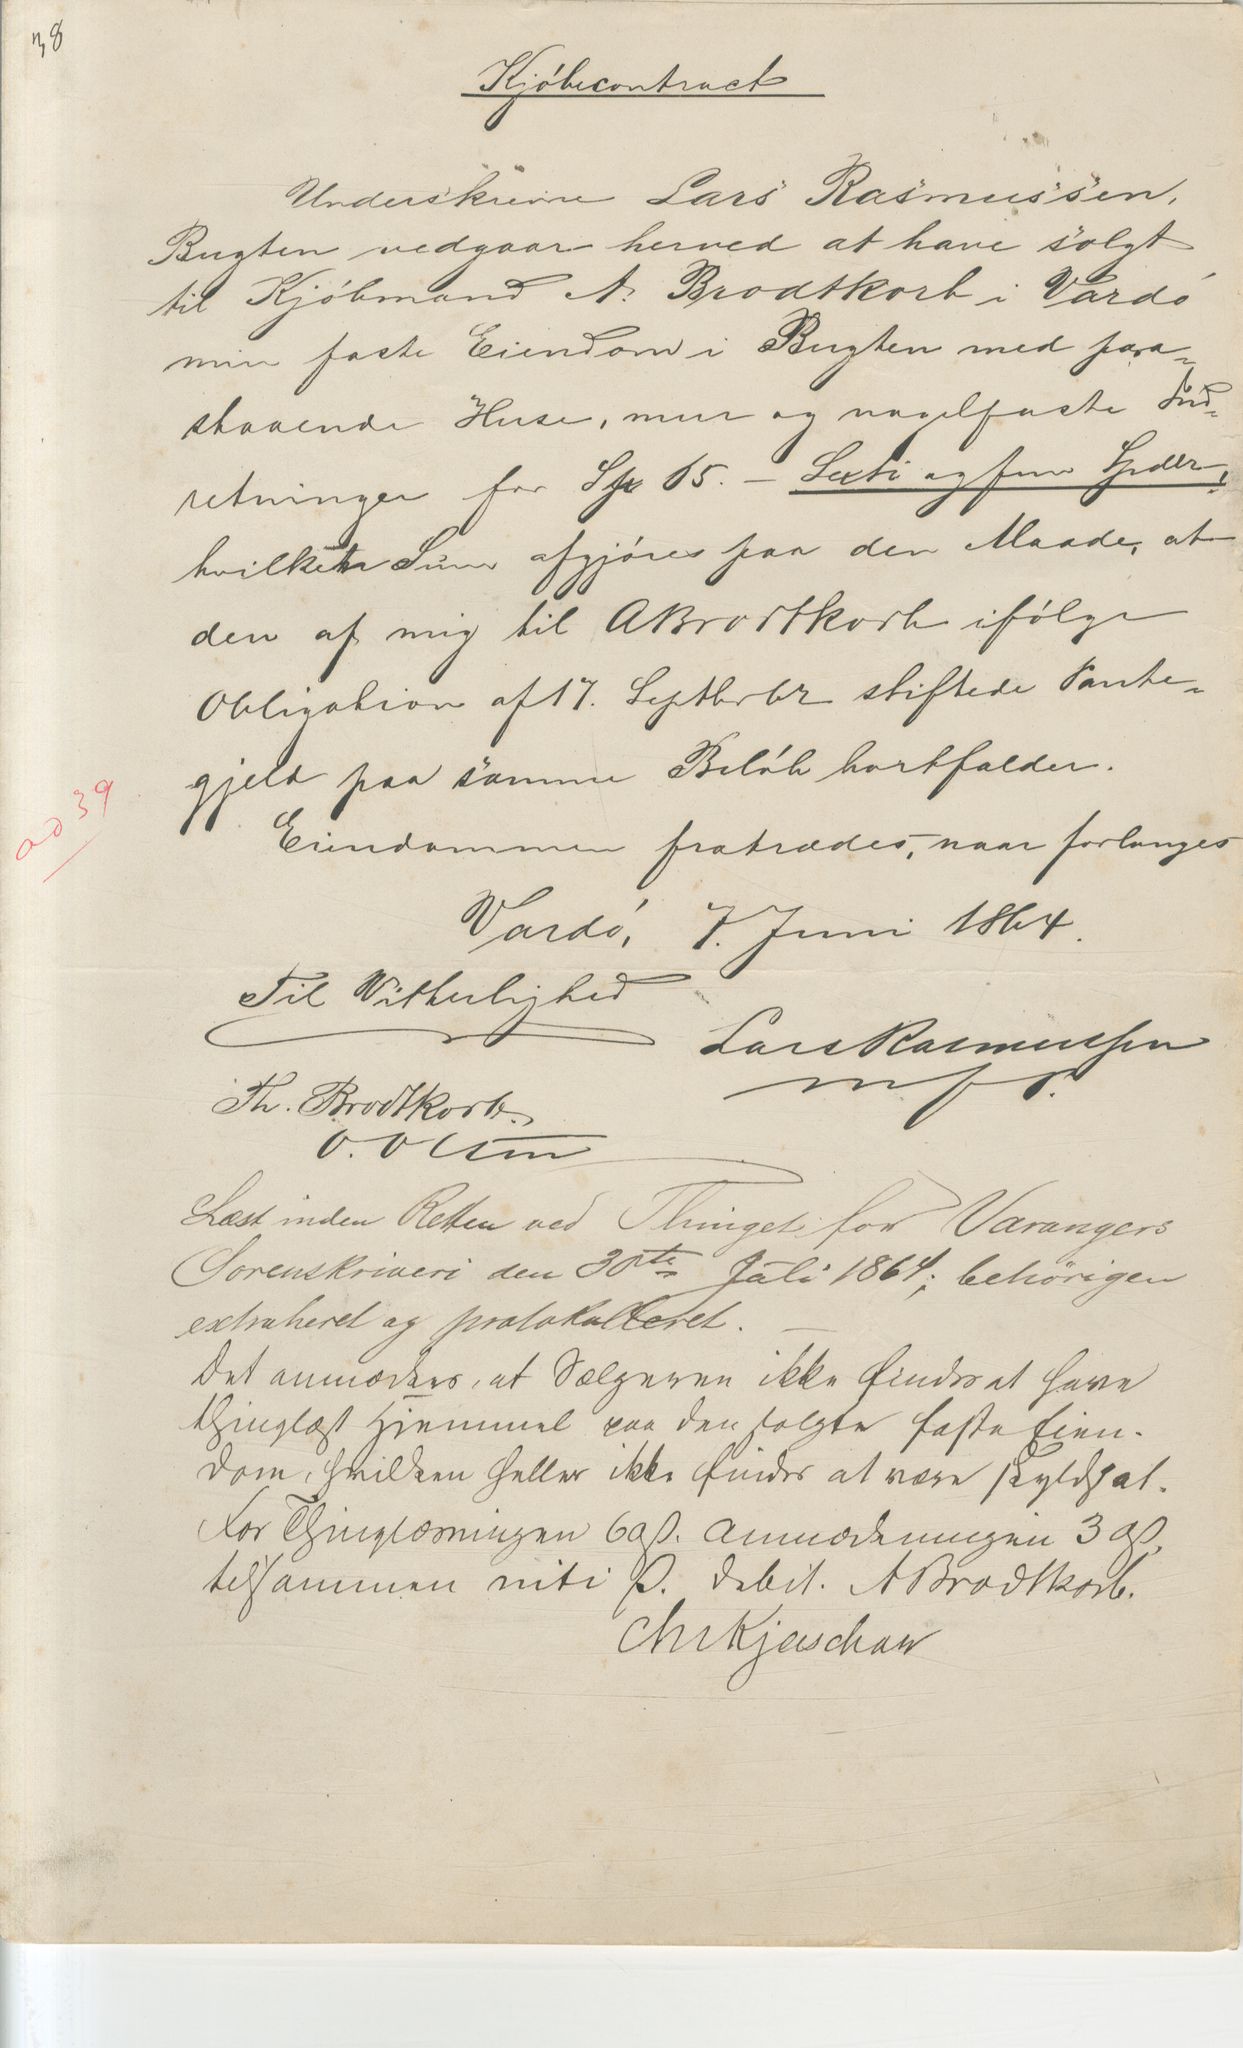 38
Kjøbecontract
Underskrevne Lars Rasmussen,
Bugten vedgaar herved at have solgt
til Kjøbmand A. Brodtkorb i Vardø
min faste Eiendom i Bugten med paa-
staaende Huse, mur og nagelfaste Ind-
retninger for Sp 65. – Sexti og fem Spdlr,
hvilken Sum afgjøres paa den Maade, at
den af mig til ABrodtkorb ifølge
Obligation af 17. Septbr 62 stiftede Pante-
gjeld paa samme Beløb bortfalder.
ad 39
Eiendommen fratrædes, naar forlanges
Vardø, 7. Juni 1864.
Til Vitterlighed
Lars Rasmussen
m f P.
Th. Brodtkorb.
O. Olsen
Læst inden Retten ved Thinget for Varangers
Sorenskriveri den 30te Juli 1864; behørigen
extraheret og protokolleret. –
Det anmærkes, at Sælgeren ikke findes at have
thinglæst Hjemmel paa den solgte faste Eien-
dom, hvilken heller ikke findes at være skyldsat.
For Thinglæsningen 60 ß. Anmærkningen 30 ß,
tilsammen niti ß. debit. ABrodtkorb.
Chr Kjerschow